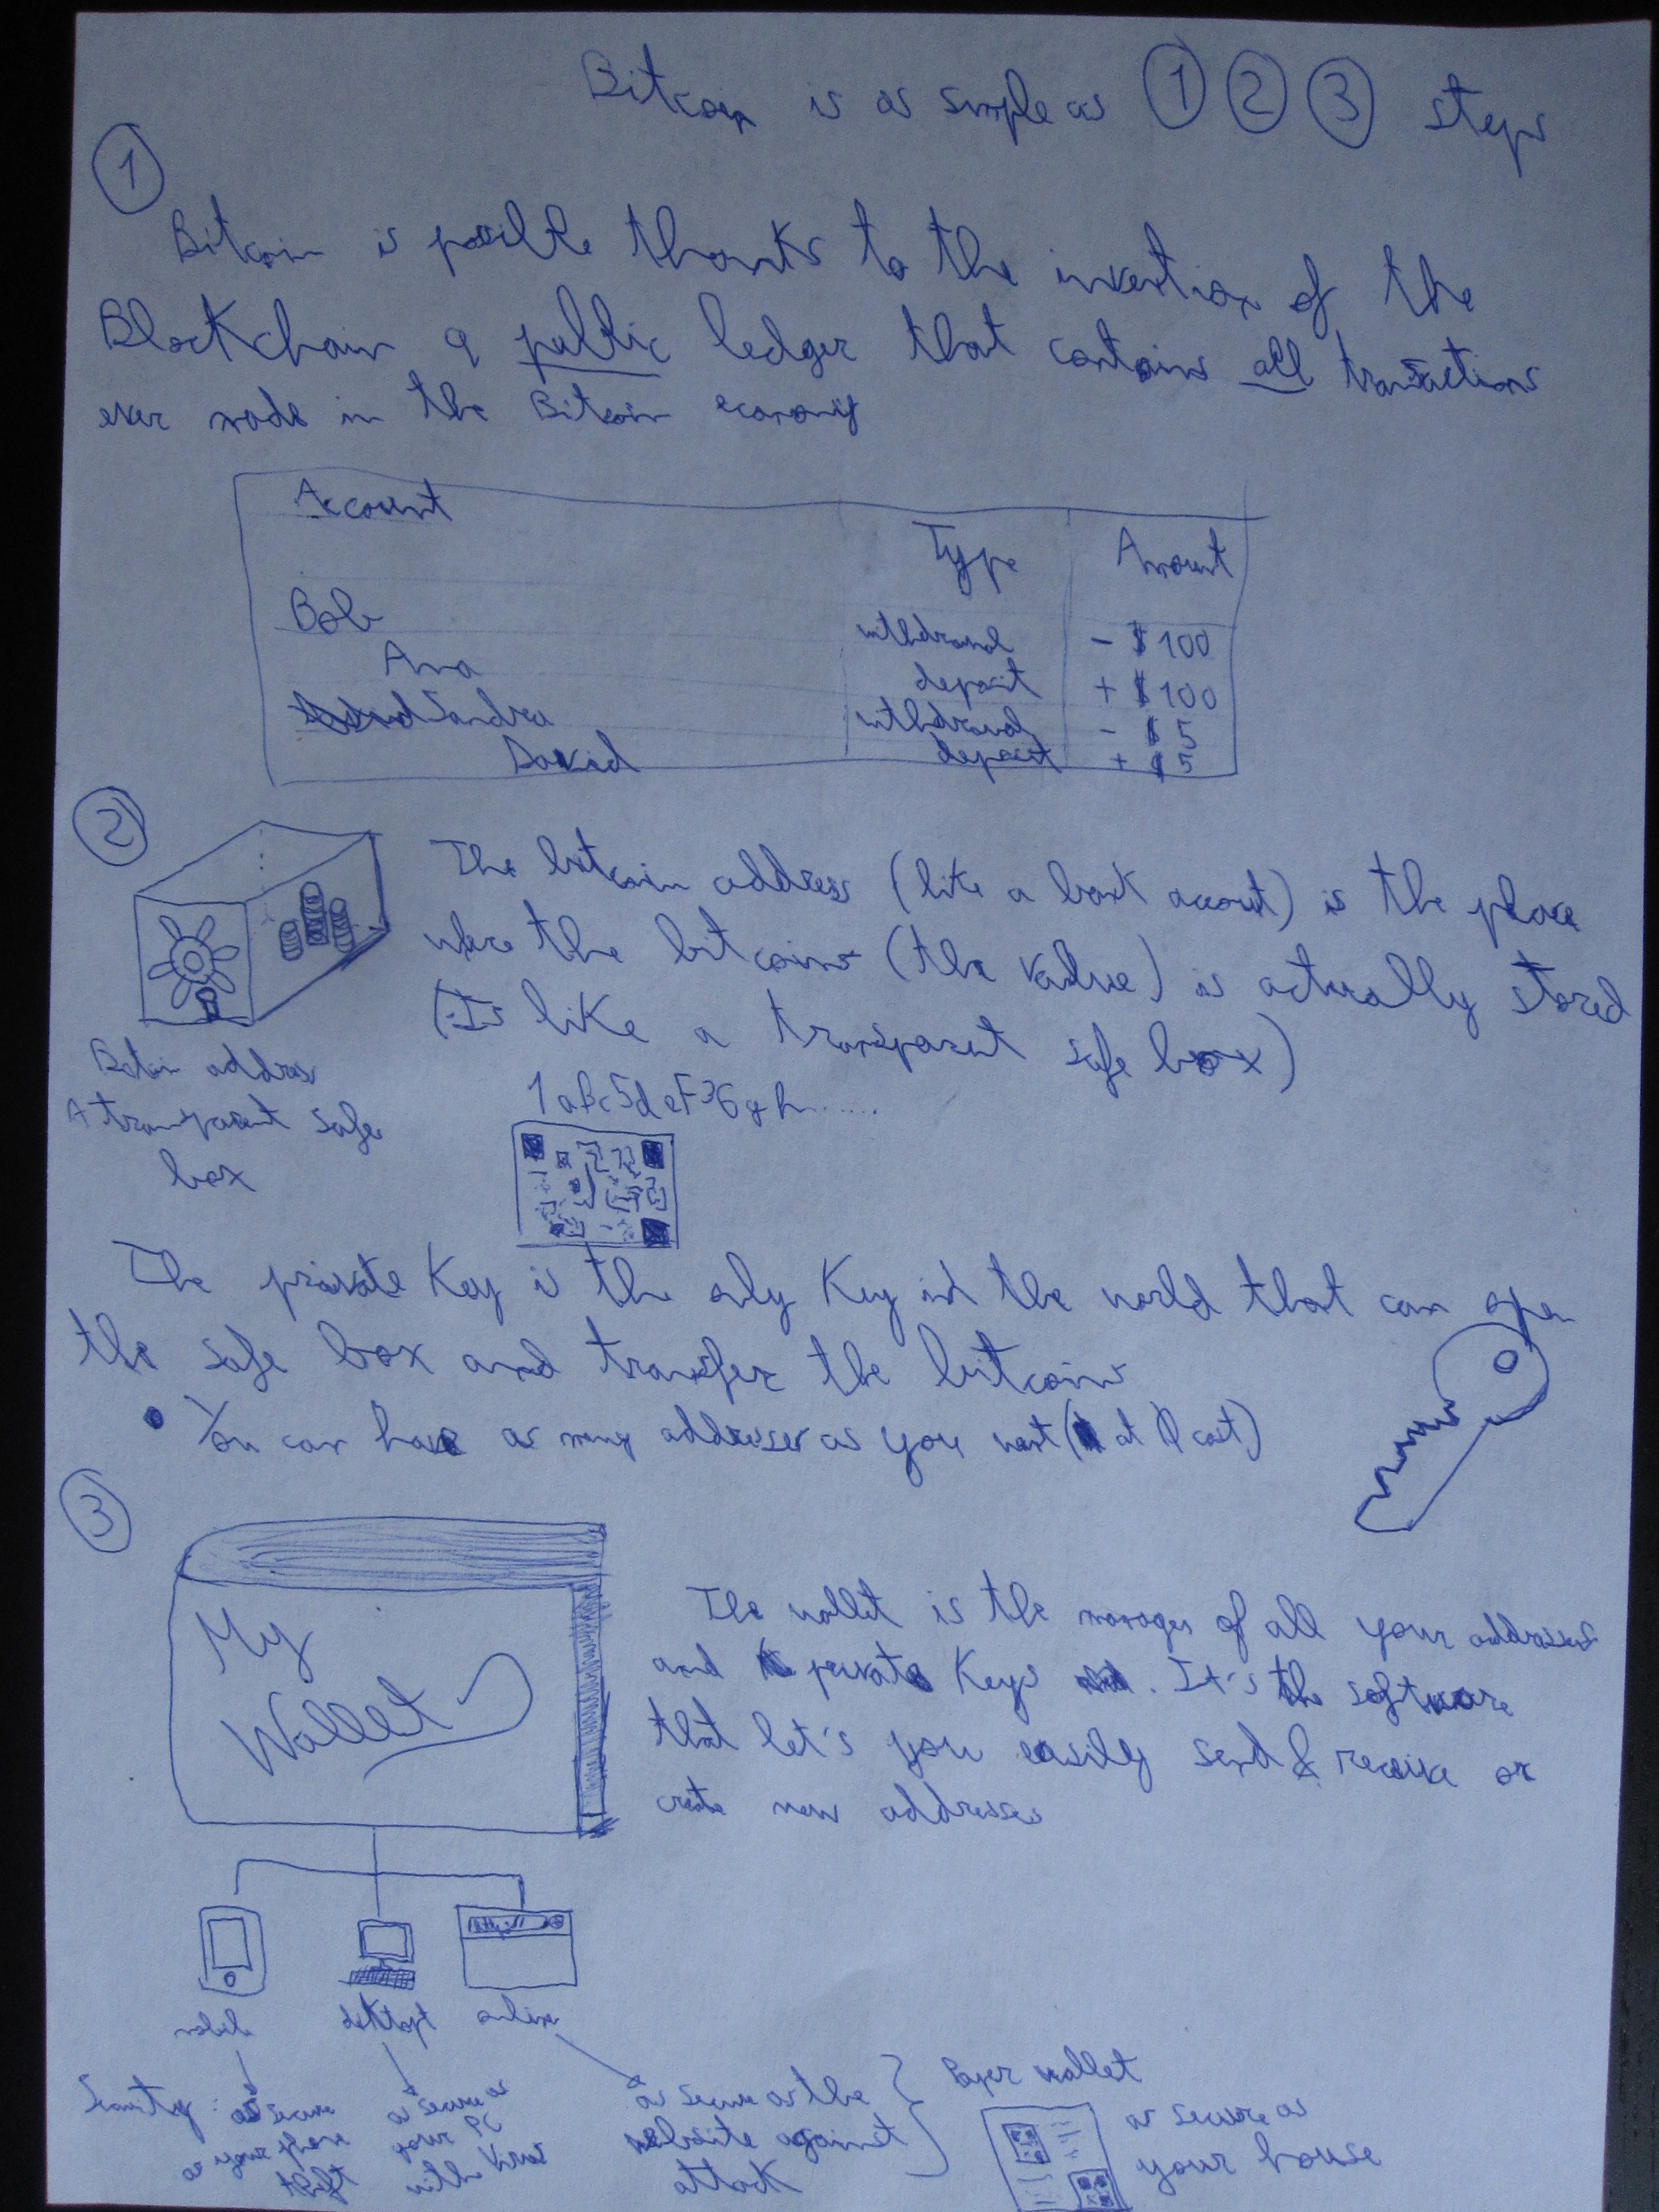 Bitcoin is as simple as 1 2 3 steps
1
Bitcoin is possible thanks to the invention of the
Blockchain a public ledger that contains all transactions
ever made in the Bitcoin economy
Account Type Amount
Bob withdrawal - $100
Ana deposit + $100
Sandra withdrawal - $5
David deposit + $5
2
The bitcoin address (like a bank account) is the place
where the bitcoins (the value) is actually stored
(Is like a transparent safe box)
Bitcoin address
A transparent safe
box
1aBc5deF36gh......
The private Key is the only Key in the world that can open
the safe box and transfer the bitcoins
• You can have as many addresses as you want (at 0 cost)
3
My
Wallet
The wallet is the manager of all your addresses
and private Keys. It's the software
that let's you easily send & receive or
create new addresses
http://
mobile desktop online
Security: as secure
as your phone
theft
as secure as
your PC
with
as secure as the
website against
attack
Paper wallet
as secure as
your house